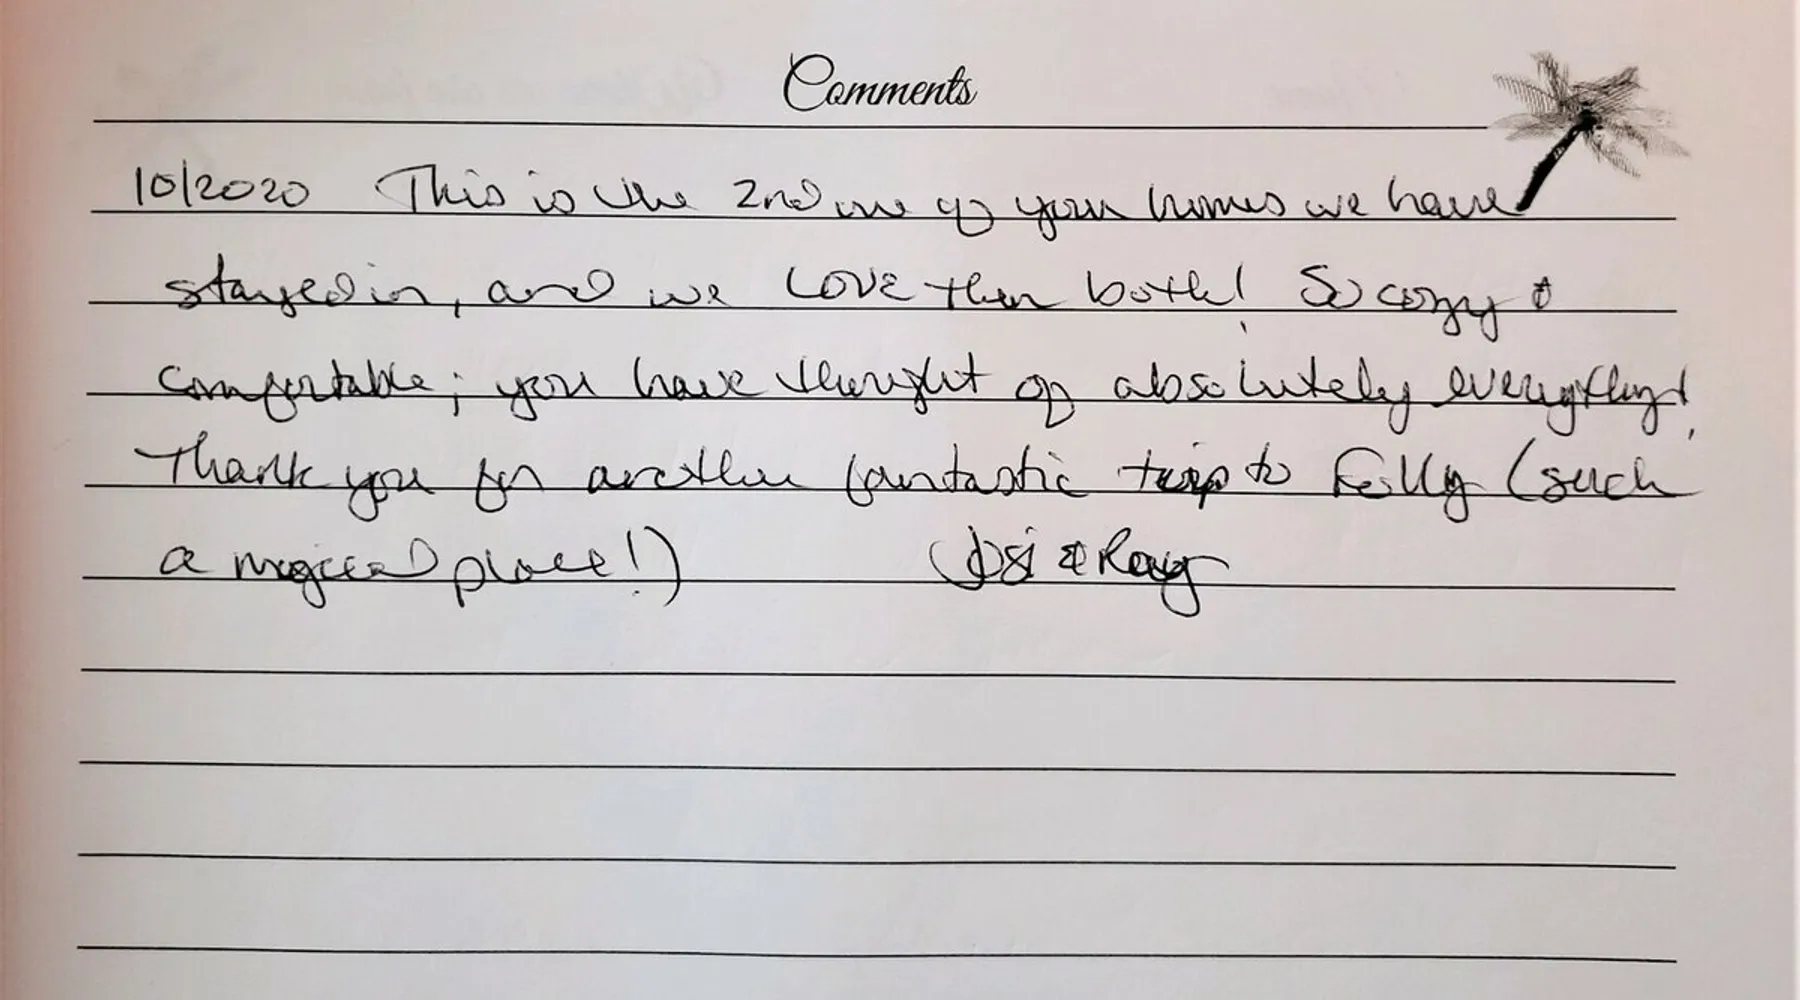 Comments
10/2020 This is the 2nd one of your homes we have
stayed in, and we LOVE them both! So cozy &
comfortable; you have thought of absolutely everything!
Thank you for another fantastic trip to Folly (such
a magical place!) & Ray